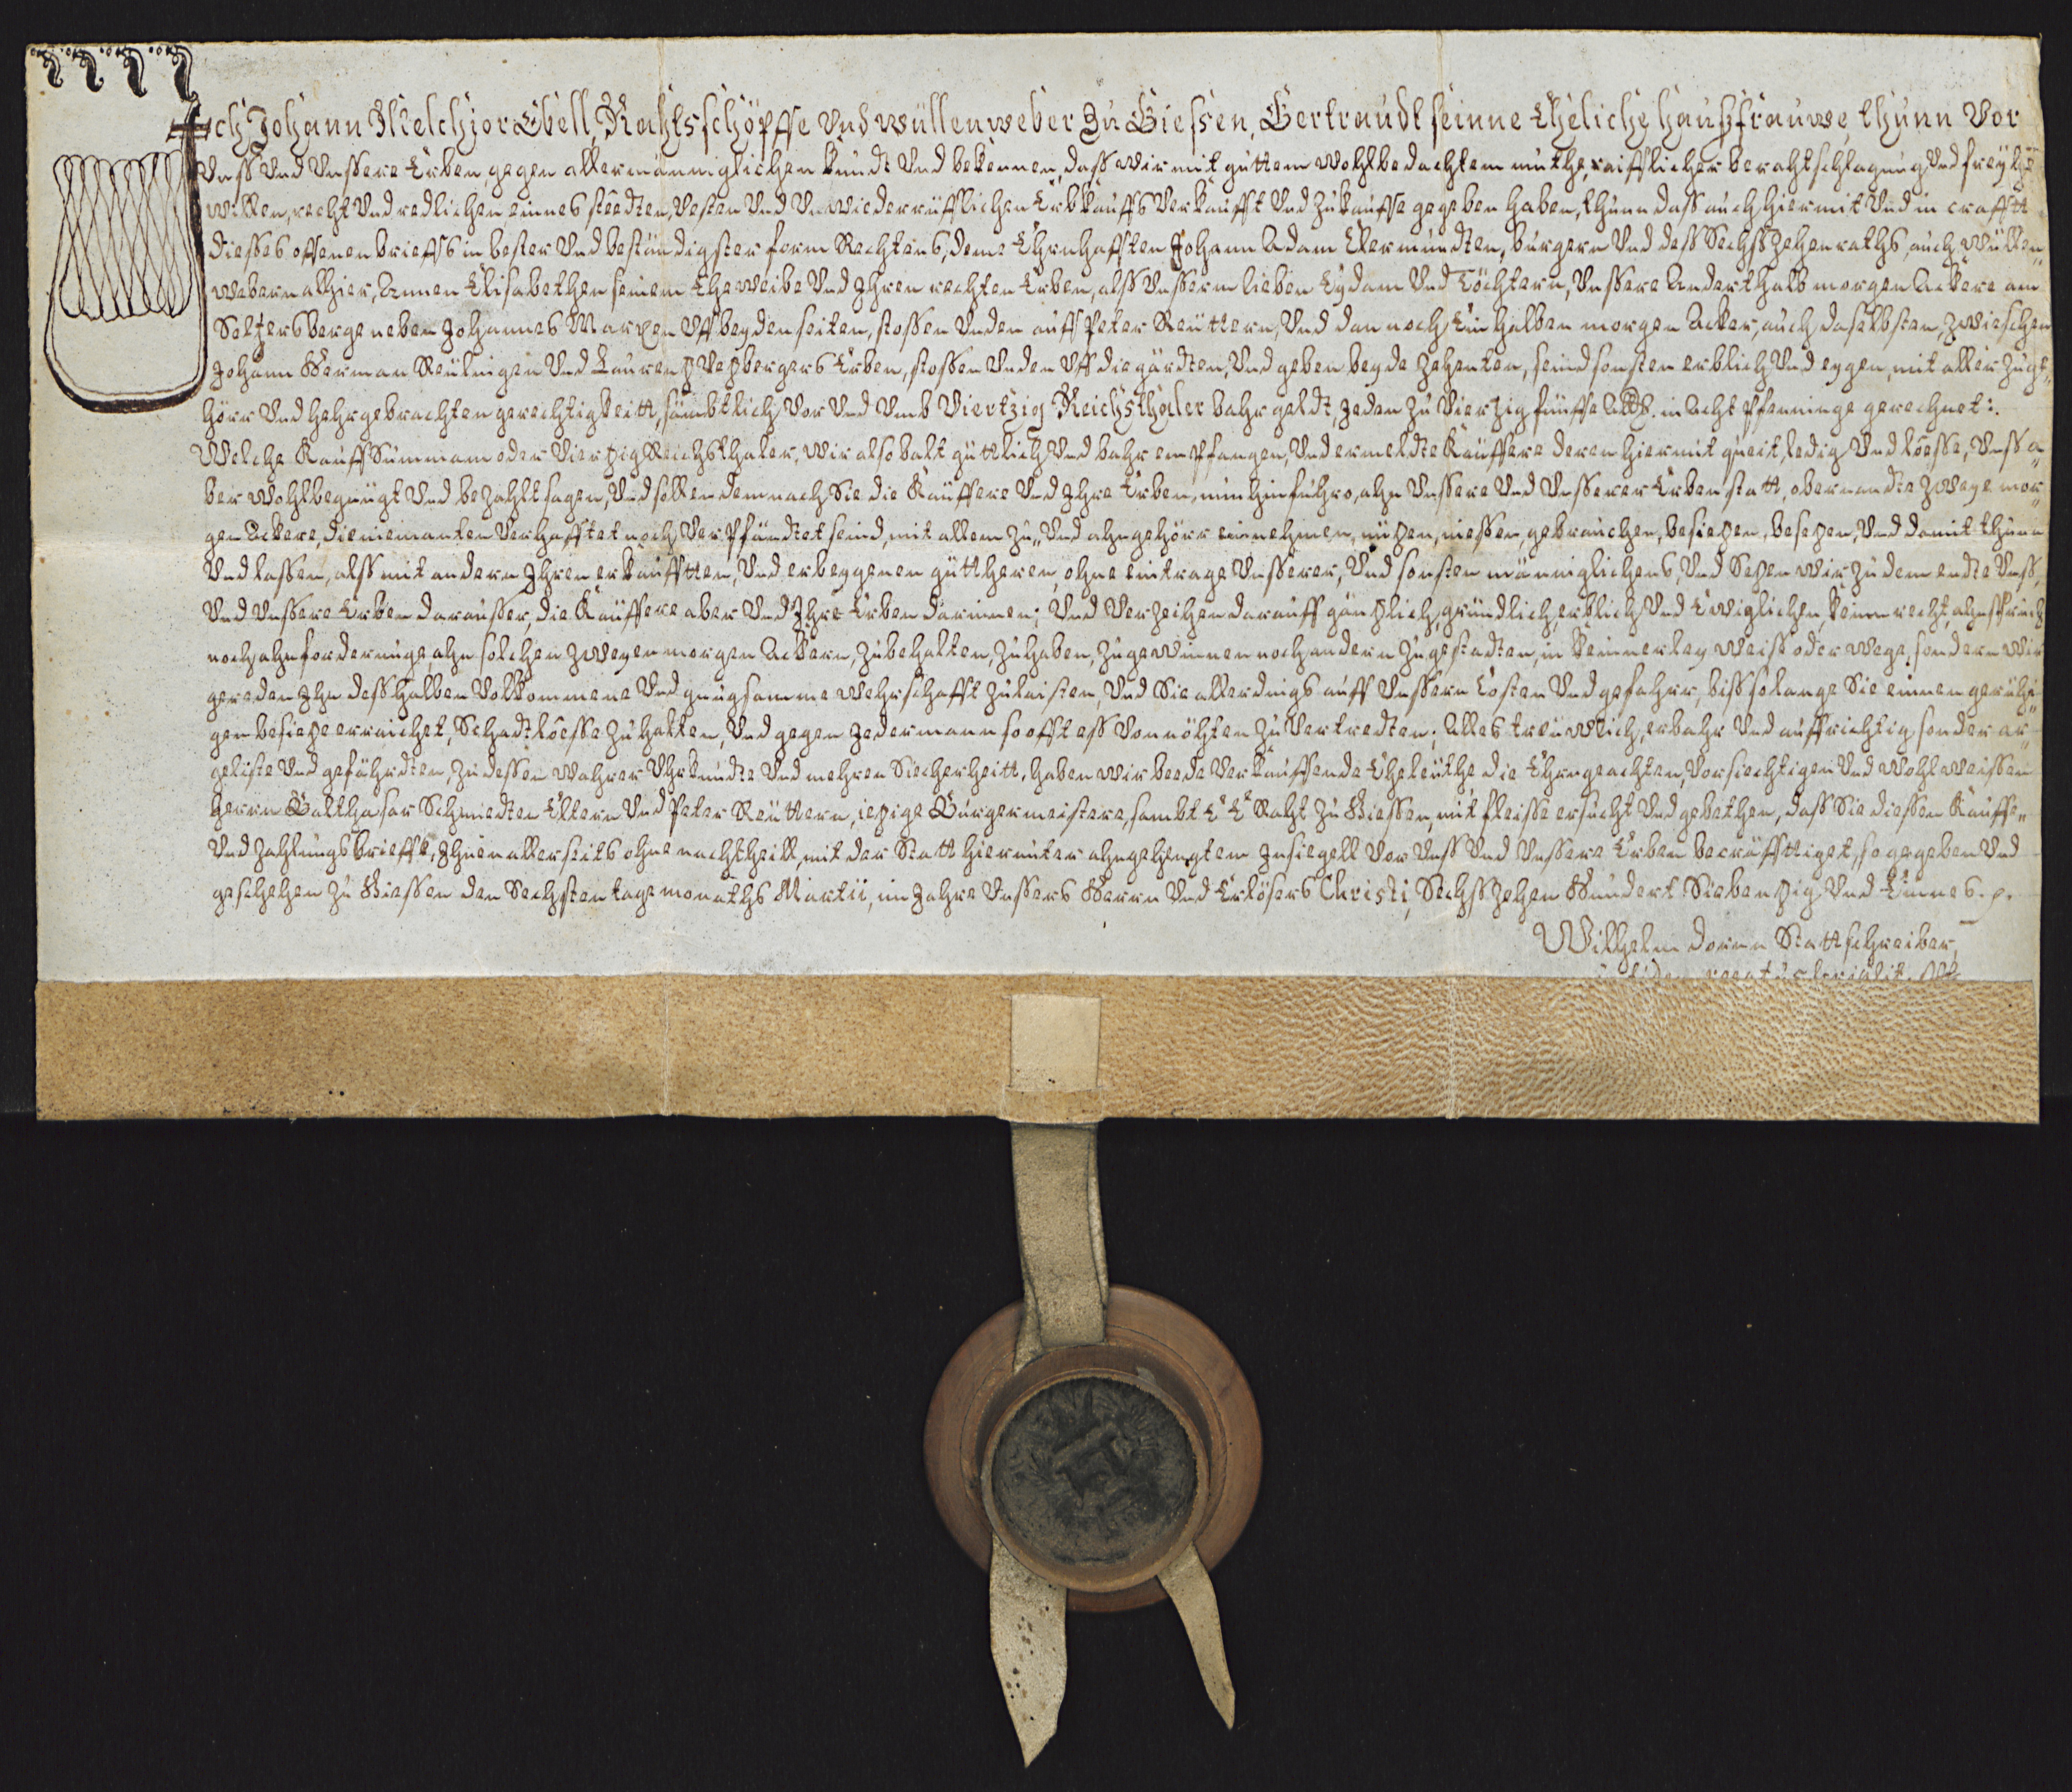 Ich Johann Melchior Ebell, Rahtsschöpffe Und wüllenweber zu Giessen, Gertraudt seinne Eheliche haussfrauwe, thunn Vor
Unss Und Unssere Erben, gegen allermänniglichen kundt Und bekennen, dass wir mit guttem wohlbedachtem muthe, raifflicher berahtschlagung Und freyhē
willen, recht Und redlichen einnes, steedten, Vesten Und Unwiederrüfflichen Erbkauffs Verkaufft Und zukauffe gegeben haben, thunn dass auch hiermit Und in crafft
diesses offenen brieffs in bester Und beständigster form Rechtens, deme Ehrnhafften Johann Adam Clermundten, burgern Und dess Sechsszehenraths, auch wüllen„
webern alhier, Annen Elisabethen seinem Eheweibe Und Ihren rechten Erben, alss Unsserm lieben Eydam Und Töchtern, Unssere Anderthalb morgen Ackers am
Seltzersberge neben Johannes Marxen Uff beyden seiten, stossen Unden auff Peter Reuttern, Und dan noch Ein halben morgen Acker, auch daselbsten, zwischen
Johann Herman Reulingen Und Laurentz Vetzbergers Erben, stossen Unden Uff die gärdten, Und geben beyde zehenten, seind sonsten erblich Und eygen, mit aller zuge„
hörr Und hehrgebrachten gerechtigkeitt, sämbtlich Vor Und Umb Viertzig Reichsthaler bahr geldt, Jeden zu Viertzig fünffe Alb. in Acht Pfenninge gerechnet:.
Welche Kauff Summam oder Viertzig Reichsthaler, wir alsobalt güttlich Und bahr empfangen, Und ermeldte Käuffere deren hiermit queit, ledig Und loesse, Unss a„
ber wohlbegnügt Und bezahlt sagen, Und sollen demnach Sie die Käuffere Und Ihre Erben, nun hinfuhro, ahn Unssere Und Unsserer Erben statt, obernandte zweye mor„
gen Ackers, die niemanten Verhafftet noch Verpfändtet seind, mit allem zu„ Und ahngehörr einnehmen, nützen, niessen, gebrauchen, besietzen, besetzen, Und damit thunn
Und lassen, alss mit andern Ihren erkaufften, Und erbeygenen güttheren, ohne eintrage Unsserer, Und sonsten männiglichens, Und Setzen wir zu dem endte Unss,
Und Unssere Erben darausser, die Käuffere aber Und Ihre Erben darinnen; Und Verzeihen darauff gäntzlich, gründlich, erblich Und Ewiglichen, keinn recht, ahnspruch
noch ahnforderunge, ahn solchen zweyen morgen Ackern, zubehalten, zuhaben, zugewinnen noch andern zugestadten, in keinnerley weiss oder wege, sondern wir
gereden Ihn desshalben Vollkommene Und gnugsamme wehrschafft zulaisten, Und Sie allerdings auff Unssern Costen Und gefahr, biss solange Sie einnen geruhi„
gen besietze erraichet, Schadtloesse zuhalten, Und gegen Jedermann so offt ess Vonnöhten zu Vertredten; Alles treuwlich, erbahr Und auffrichtig sonder ar„
geliste Und gefährdten, Zu dessen wahrer Uhrkundte Und mehren Siecherheitt, haben wir beede Verkauffende Eheleuthe die Ehrngeachten, Vorsiechtigen Und wohlweissen
herrn Balthasar Schmiedten Eltern Und Peter Reuttern, ietzige Burgermeistere, sambt E E Raht zu Giessen, mit fleisse ersucht Und gebethen, dass Sie diessen Kauffs„
Und zahlungsbrieffe, Ihnen allerseits ohne nachtheill, mit der Statt hierunter ahngehengtem Insiegell Vor Unss Und Unssere Erben becräfftiget, so gegeben Und
geschehen zu Giessen den Sechsten tage monaths Martii, im Jahre Unssers Herrn Und Erlösers Christi, Sechsszehen Hundert Siebentzig Und Einnes. p.
Wilhelm Dorn Stattschreiber,